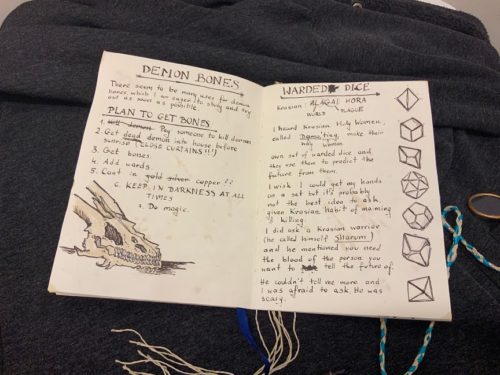 DEMON BONES
There seem to be many uses for demon
bones which I am eager to study and try
out as soon as possible.
PLAN TO GET BONES
1. kill demon Pay someone to kill demon
2. Get dead demon into house before
sunrise (CLOSE CURTAINS!!!)
3. Get bones.
4. Add wards
5. Coat in gold silver copper!?
6. KEEP IN DARKNESS AT ALL
TIMES
7. Do magic.
WARDED DICE
Krasian: ALAGAI HORA
WORLD PLAGUE
I heard Krasian Holy Women,
called Dama'ting, make their
holy women
own set of warded dice and
they use them to predict the
future from them.
I wish I could get my hands
on a set but it's probably
not the best idea to ask
given Krasian habit of maiming
& killing.
I did ask a Krasian warrior
(he called himself Sharum)
and he mentioned you need
the blood of the person you
want to tell the future of.
He couldn't tell me more and
I was afraid to ask. He was
scary.